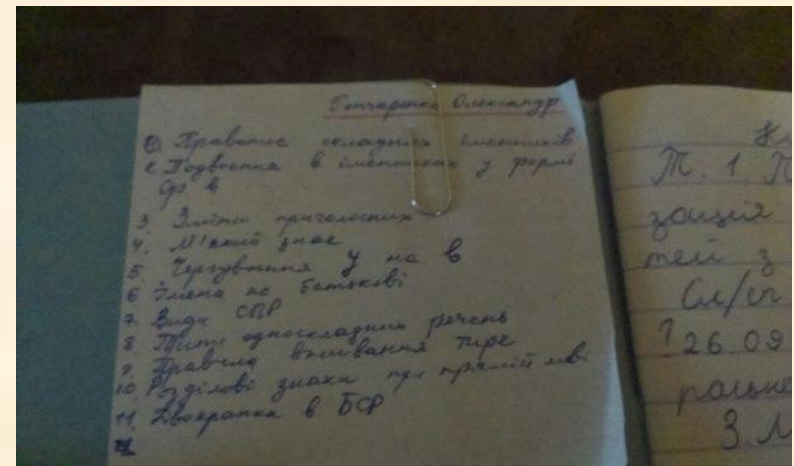 Гончаренко Олександр
1 Правопис складних іменників
2 Подвоєння в іменниках у формі
Ор в
3. Зміни приголосних
4. М'який знак
5. Чергування У на В
6 Імена по батькові
7. Види СПР
8. Типи односкладних речень
9. Правила вживання тире
10 Розділові знаки при прямій мові
11. Двокрапка в БСР
Т. 1 П
зація
тей з
Сл/сл
? 26.09
3. Л